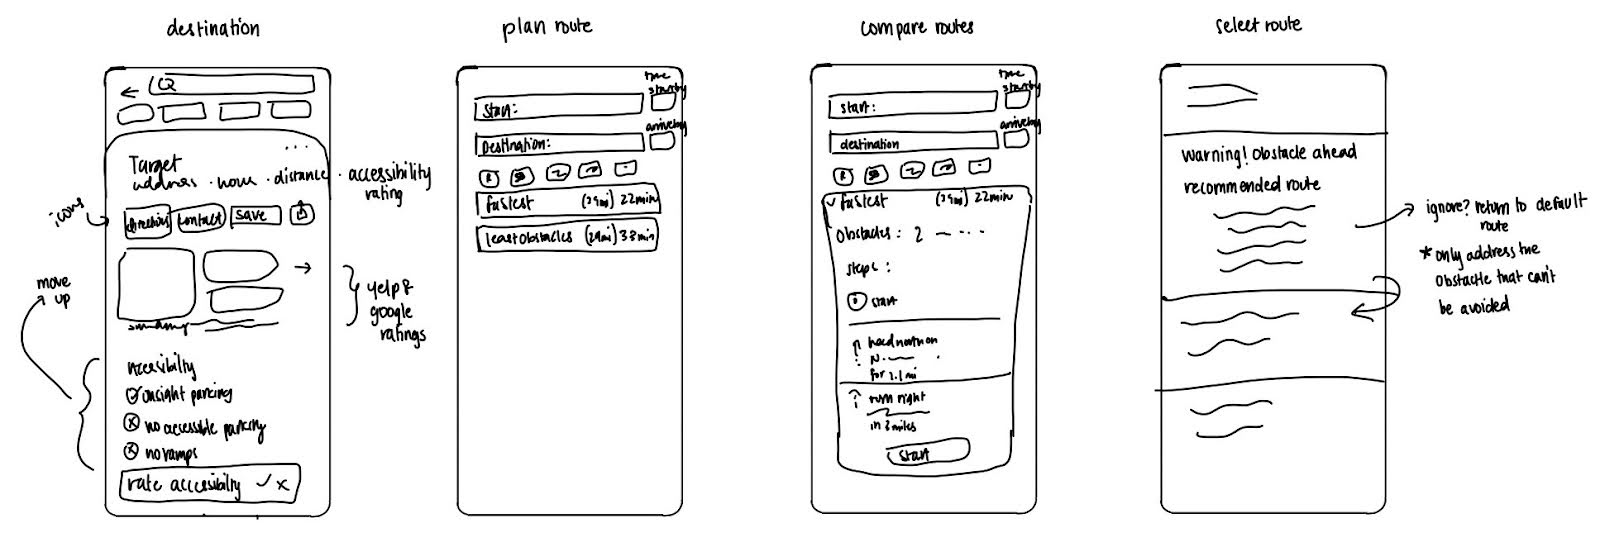 destination
Q
Target
address · hours · distance · accessibility
rating
icons
directions
contact
save
move
up
yelp &
google
ratings
summary
accessibilty
onsight parking
no accessible parking
no ramps
rate accessibilty
plan route
time
start by
start:
arrive by
Destination:
fastest (29mi) 22min
least obstacles (29mi) 33min
compare routes
time
start by
start:
arrive by
destination
fastest (29mi) 22min
Obstacles: 2
steps:
start
head north on
N.
for 1.1 mi
turn right
in 2 miles
start
select route
warning! Obstacle ahead
recommended route
ignore? return to default
route
* only address the
obstacle that can't
be avoided